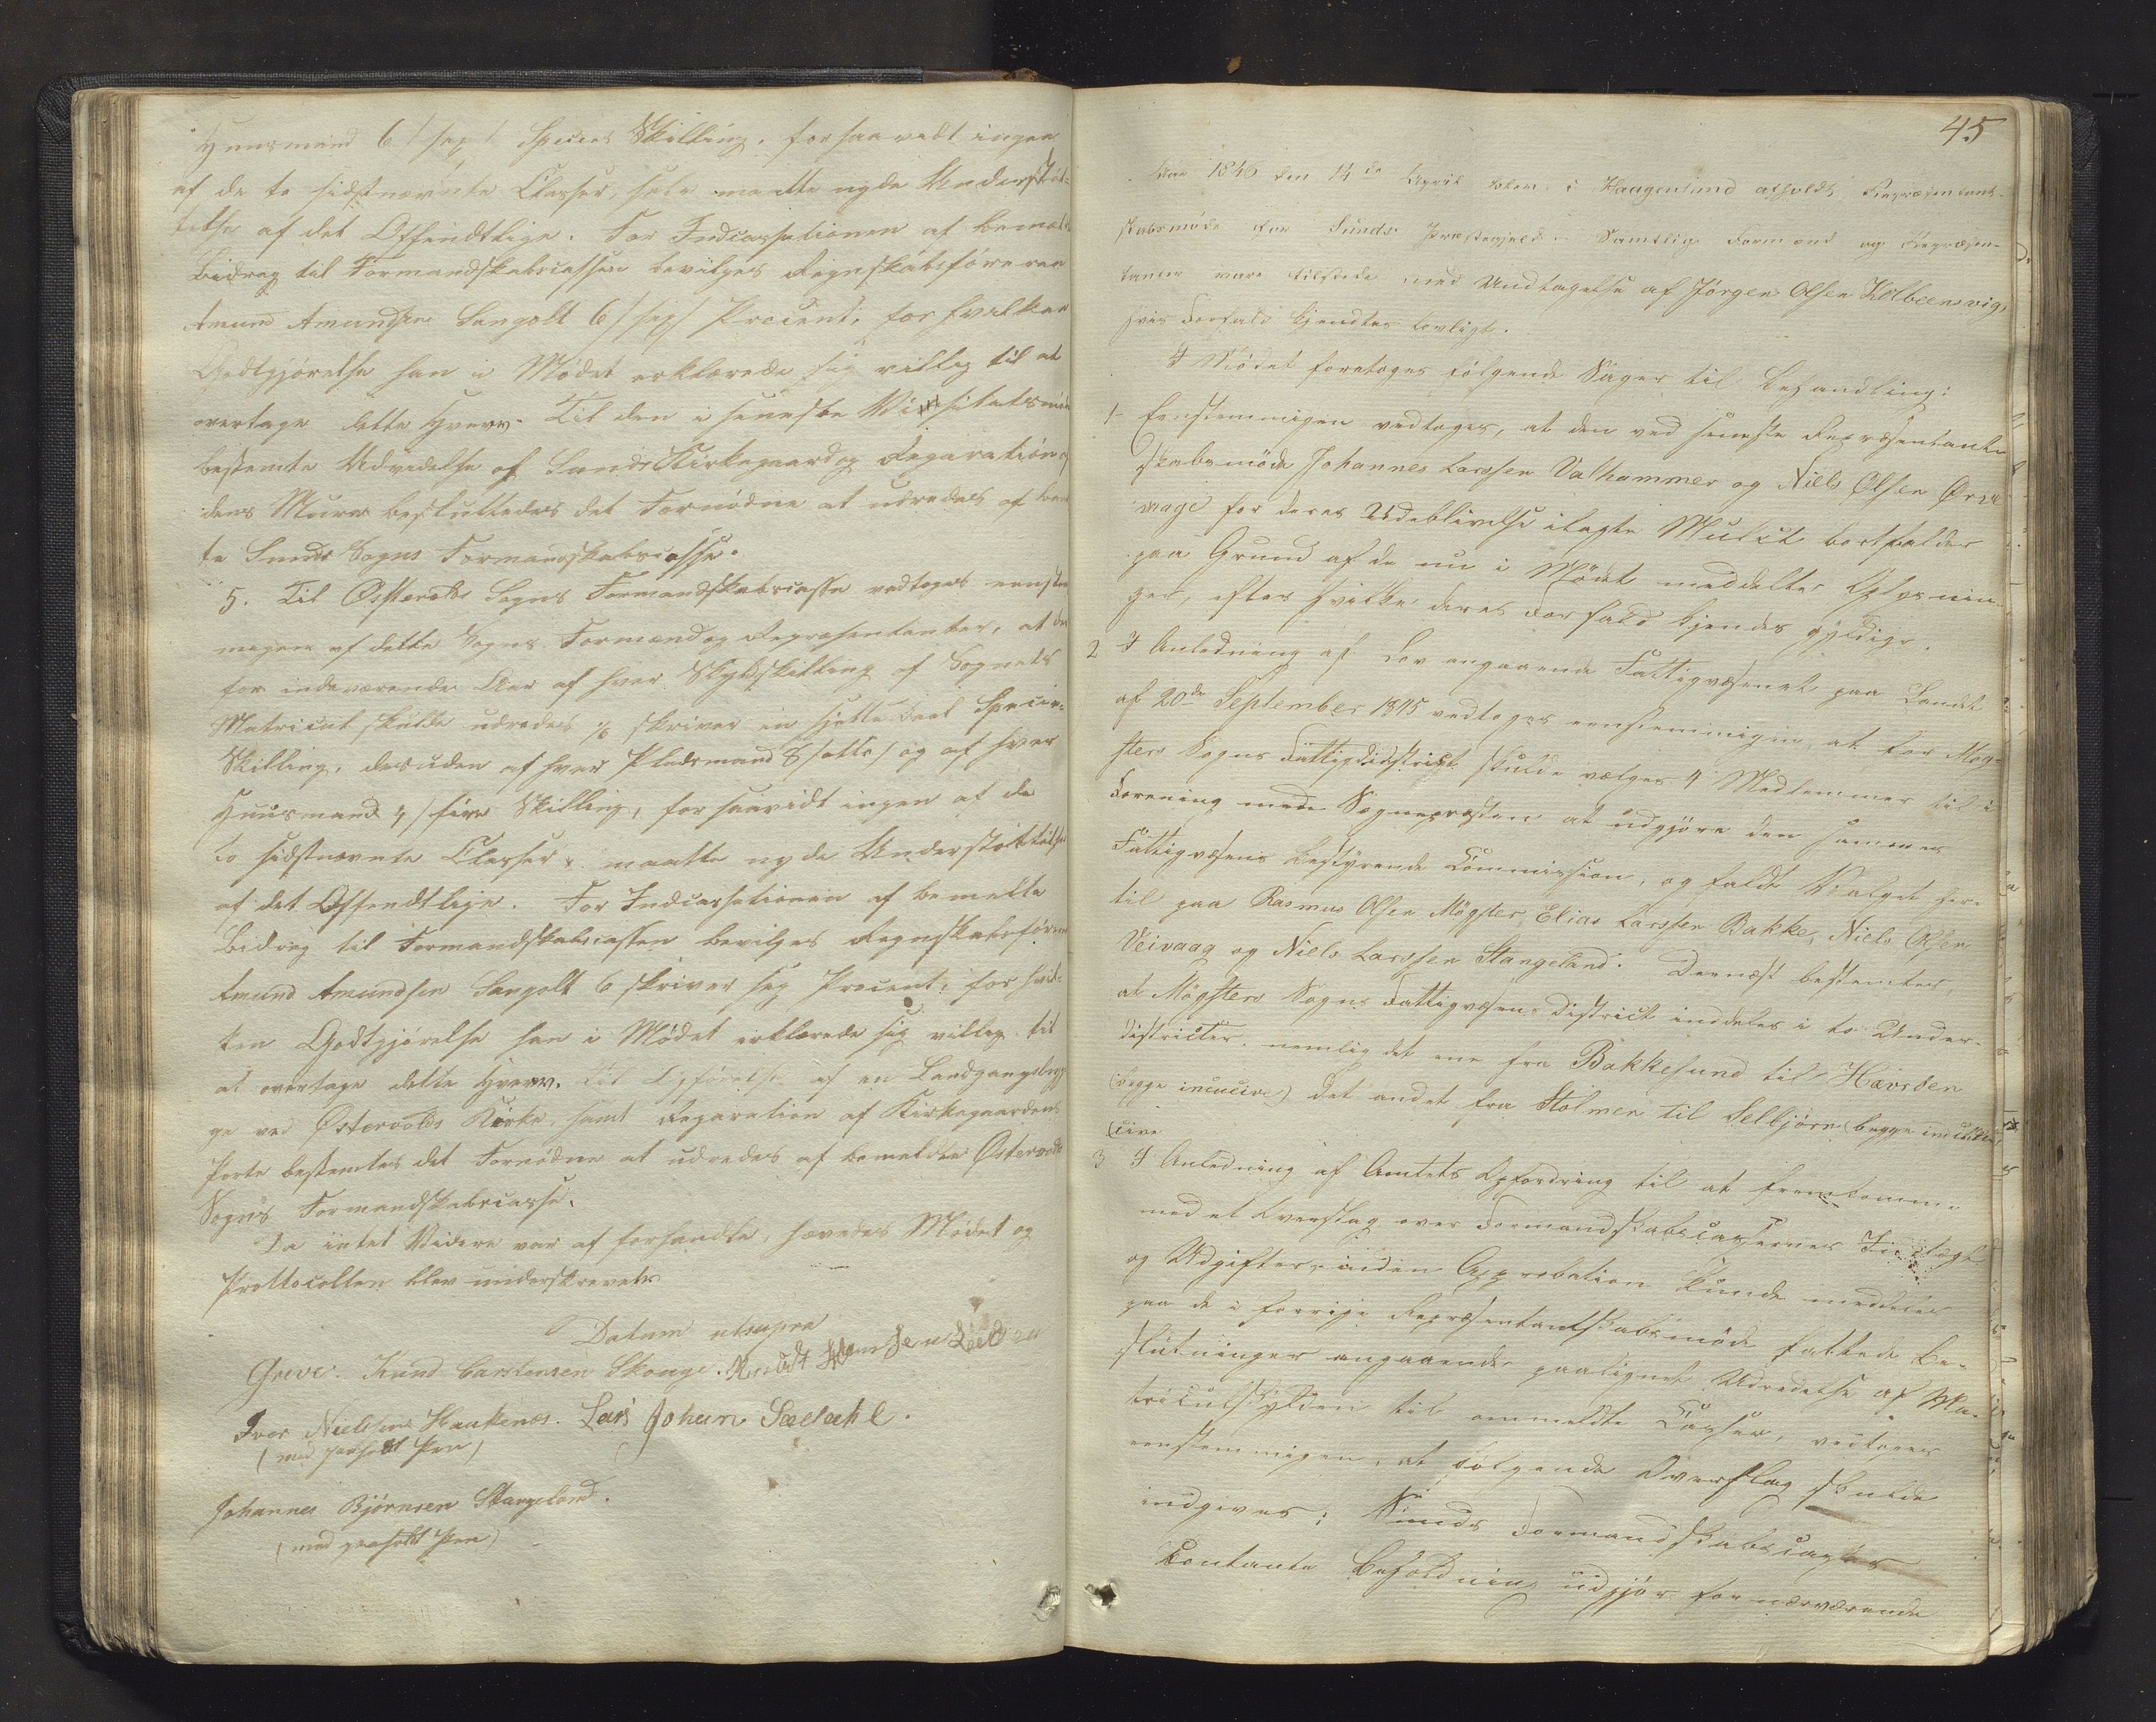 Huusmand 6 /sex/ Species Skilling, forsaavidt ingen
af de to sidstnævnte Classer, selv maatte nyde Understøt-
telse af det Offendtlige. For Indcassationen af bemældte
Bidrag til Formandskabscassen bevilges Regnskabsføreren
Amund Amundsen Bangolt 6 /sex/ Procent, for hvilken
Godtgjørelse han i Mødet erklærede sig villig til at
overtage dette Hverv. Til den i seneste Visitatsmøde
bestemte Udvidelse af Sunds Kirkegaard og Reparation af
dens Mure besluttedes det Fornødne at udredes af bemeld-
te Sunds Sogns Formandskabscasse.
5. Til Østervolds Sogns Formandskabscasse vedtoges eenstem-
migen af dette Sogns Formænd og Repræsentanter, at der
for indeværende Aar af hver Skyldskilling af Sognets
Matricul skulde udredes 1/6 skriver en sjette Deel Species
Skilling, desuden af hver Pladsmand 8 /otte/ og af hver
Huusmand 4 /fire/ Skilling, forsaavidt ingen af de
to sidstnævnte Classer maatte nyde Understøttelse
af det Offendtlige. For Indcassationen af bemeldte
Bidrag til Formandskabscassen bevilges Regnskabsføreren
Amund Amundsen Bangolt 6 skriver sex Procent, for hvil-
ken Godtgjørelse han i Mødet erklærede sig villig til
at overtage dette Hverv. Til Opførelse af en Landgangsbryg-
ge ved Østervolds Kirke, samt Reparation af Kirkegaardens
Porte bestemtes det Fornødne at udredes af bemeldte Østervolds
Sogns Formandskabscasse.
Da intet Videre var at forhandle, hævedes Mødet og
Prottocollen blev underskrevet.
Datum utsupra
Greve. Knud Carstensen Skouge. Knudt Hansen
Iver Nielsen Haakenæs. Lars Johan Sælahl.
(med paaholt Pen)
Johannes Bjørnsen Stangeland.
(med paaholt Pen)
45
Aar 1846 den 14de April blev i Haagensund afholdt Repræsentant-
skabsmøde for Sunds Præstegjeld. Samtlige Formænd og Repræsen-
tanter vare tilstede med Undtagelse af Jørgen Olsen Kolbeensvig,
hvis Forfald kjendtes lovligt.
I Mødet foretoges følgende Sager til Behandling:
1- Eenstemmigen vedtoges, at den ved seneste Repræsentant-
skabsmøde Johannes Larssen Valhammer og Niels Olsen
vaage for deres Udeblivelse ilagte Mulct bortfalder
paa Grund af de nu i Mødet meddelte Oplysnin-
ger, efter hvilke deres Forfald kjendes gyldige.
2 I Anledning af Lov angaaende Fattigvæsenet paa Landet
af 20de September 1845 vedtoges eenstemmigen at for Møg-
sters Sogns Fattigdistrict skulde vælges 4 Medlemmer til i
Forening med Sognepræsten at udgjøre den sammes
Fattigvæsens bestyrende Commission, og faldt Valget her-
til paa Rasmus Olsen Møgster, Elias Larssen Bakke, Niels Olsen
Veivaag og Niels Larssen Stangeland. Dernæst bestemtes,
at Møgsters Sogns Fattigvæsens District inddeles i to Under-
districter, nemlig det ene fra Bakkesund til Hævrøen
(begge incucive) det andet fra Stolmen til Selbjørn (begge inclu-
cive
3 I Anledning af Amtets Opfordring til at fremkomme
med et Overslag over Formandskabscassernes Indtægt
og Udgifter, inden Approbation kunde meddeles
paa de i forrige Repræsentantskabsmøde fattede Be-
slutninger angaaende paalignet Udredelse af Ma-
triculskylden til ommeldte Casser, vedtoges
eenstemmigen, at følgende Overslag skulde
indgives: Sunds Formandskabscasses
Contante Beholdning udgjør for nærværende